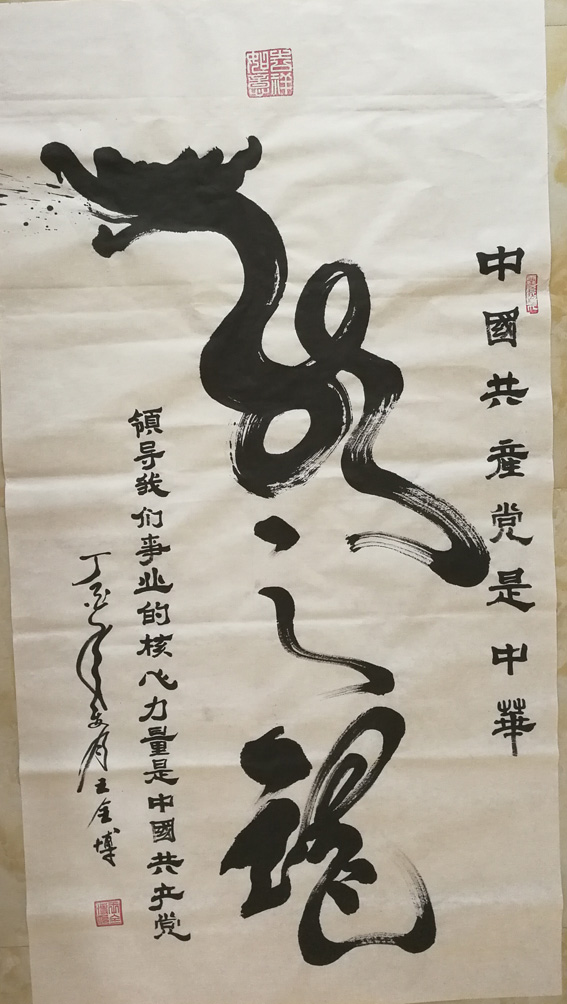 吉祥如意
中國共産党是中華
龙之魂
領导我们事业的核心力量是中國共产党
丁酉年 月王 博